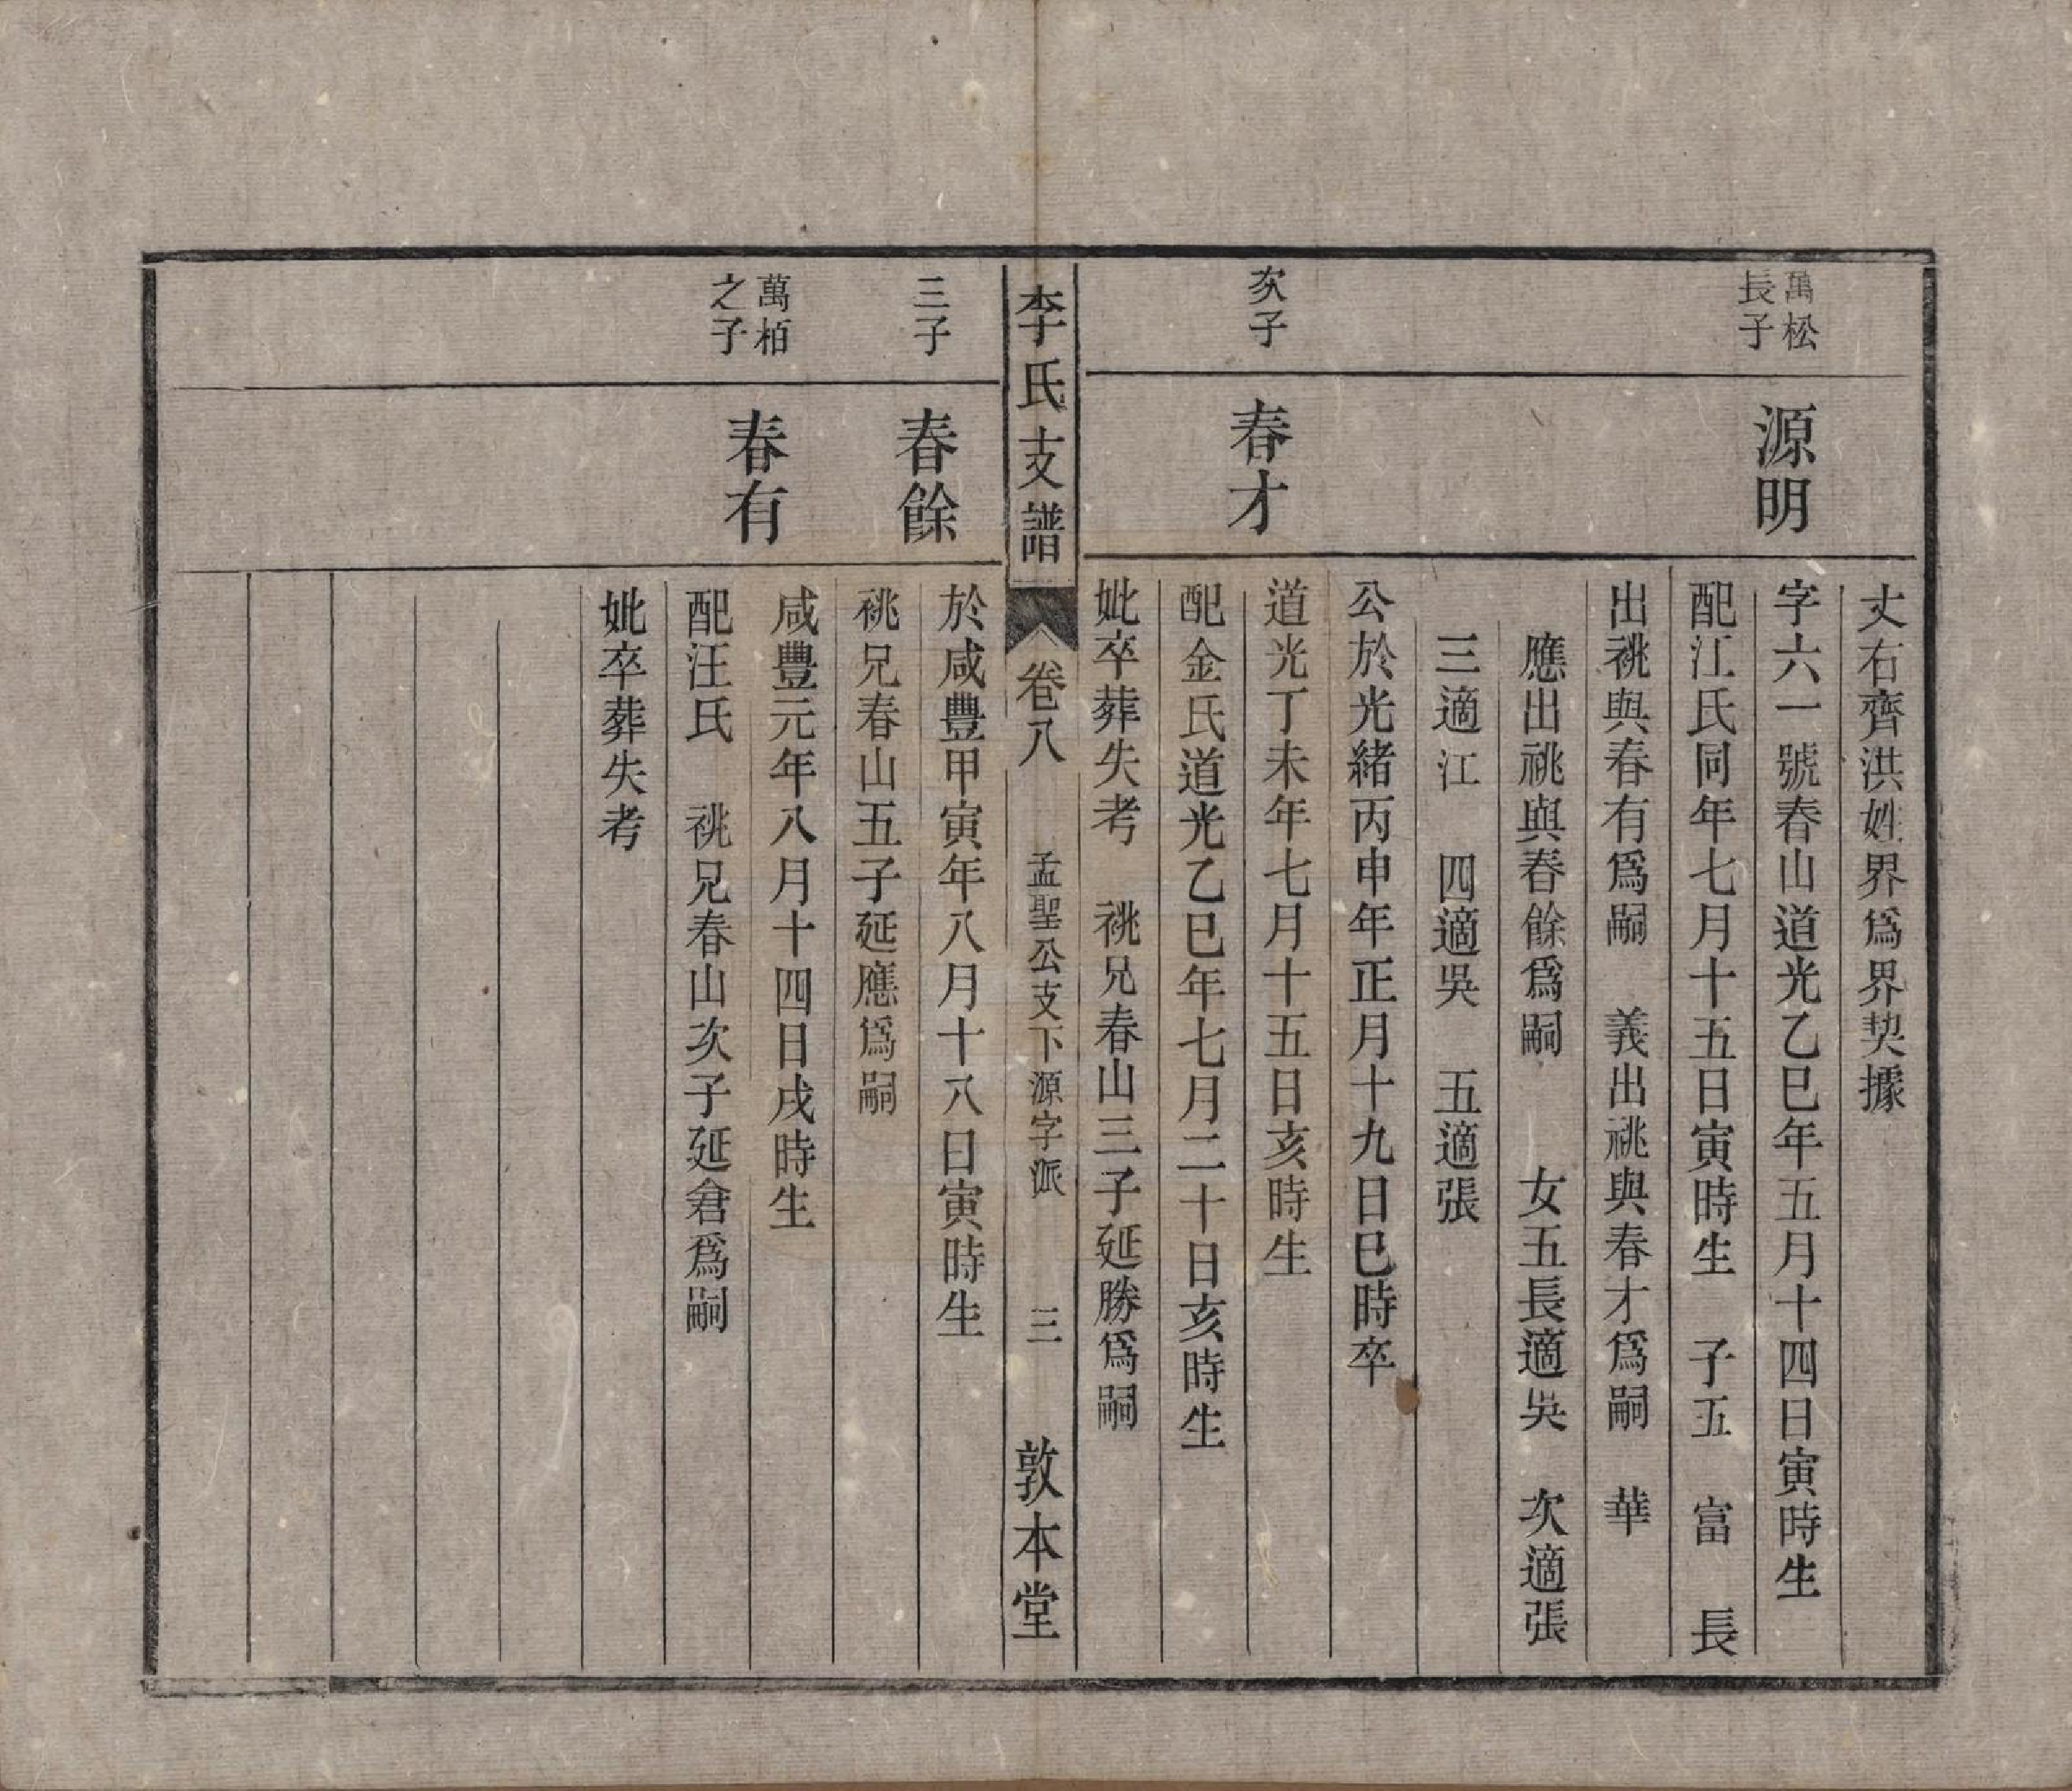 丈右齊洪姓界爲界契據
萬松
長子
源明
字六一號春山道光乙巳年五月十四日寅時生
配江氏同年七月十五日寅時生　子五　富　長
出祧與春有爲嗣　義出祧與春才爲嗣　華
應出祧與春餘爲嗣　女五長適吳　次適張
三適江　四適吳　五適張
公於光緒丙申年正月十九日巳時卒
次子
春才
道光丁未年七月十五日亥時生
配金氏道光乙巳年七月二十日亥時生
妣卒葬失考　祧兄春山三子延勝爲嗣
李氏支譜
卷八
孟聖公支下源字派
三
敦本堂
三子
春餘
於咸豐甲寅年八月十八日寅時生
祧兄春山五子延應爲嗣
萬栢
之子
春有
咸豐元年八月十四日戌時生
配汪氏　祧兄春山次子延倉爲嗣
妣卒葬失考